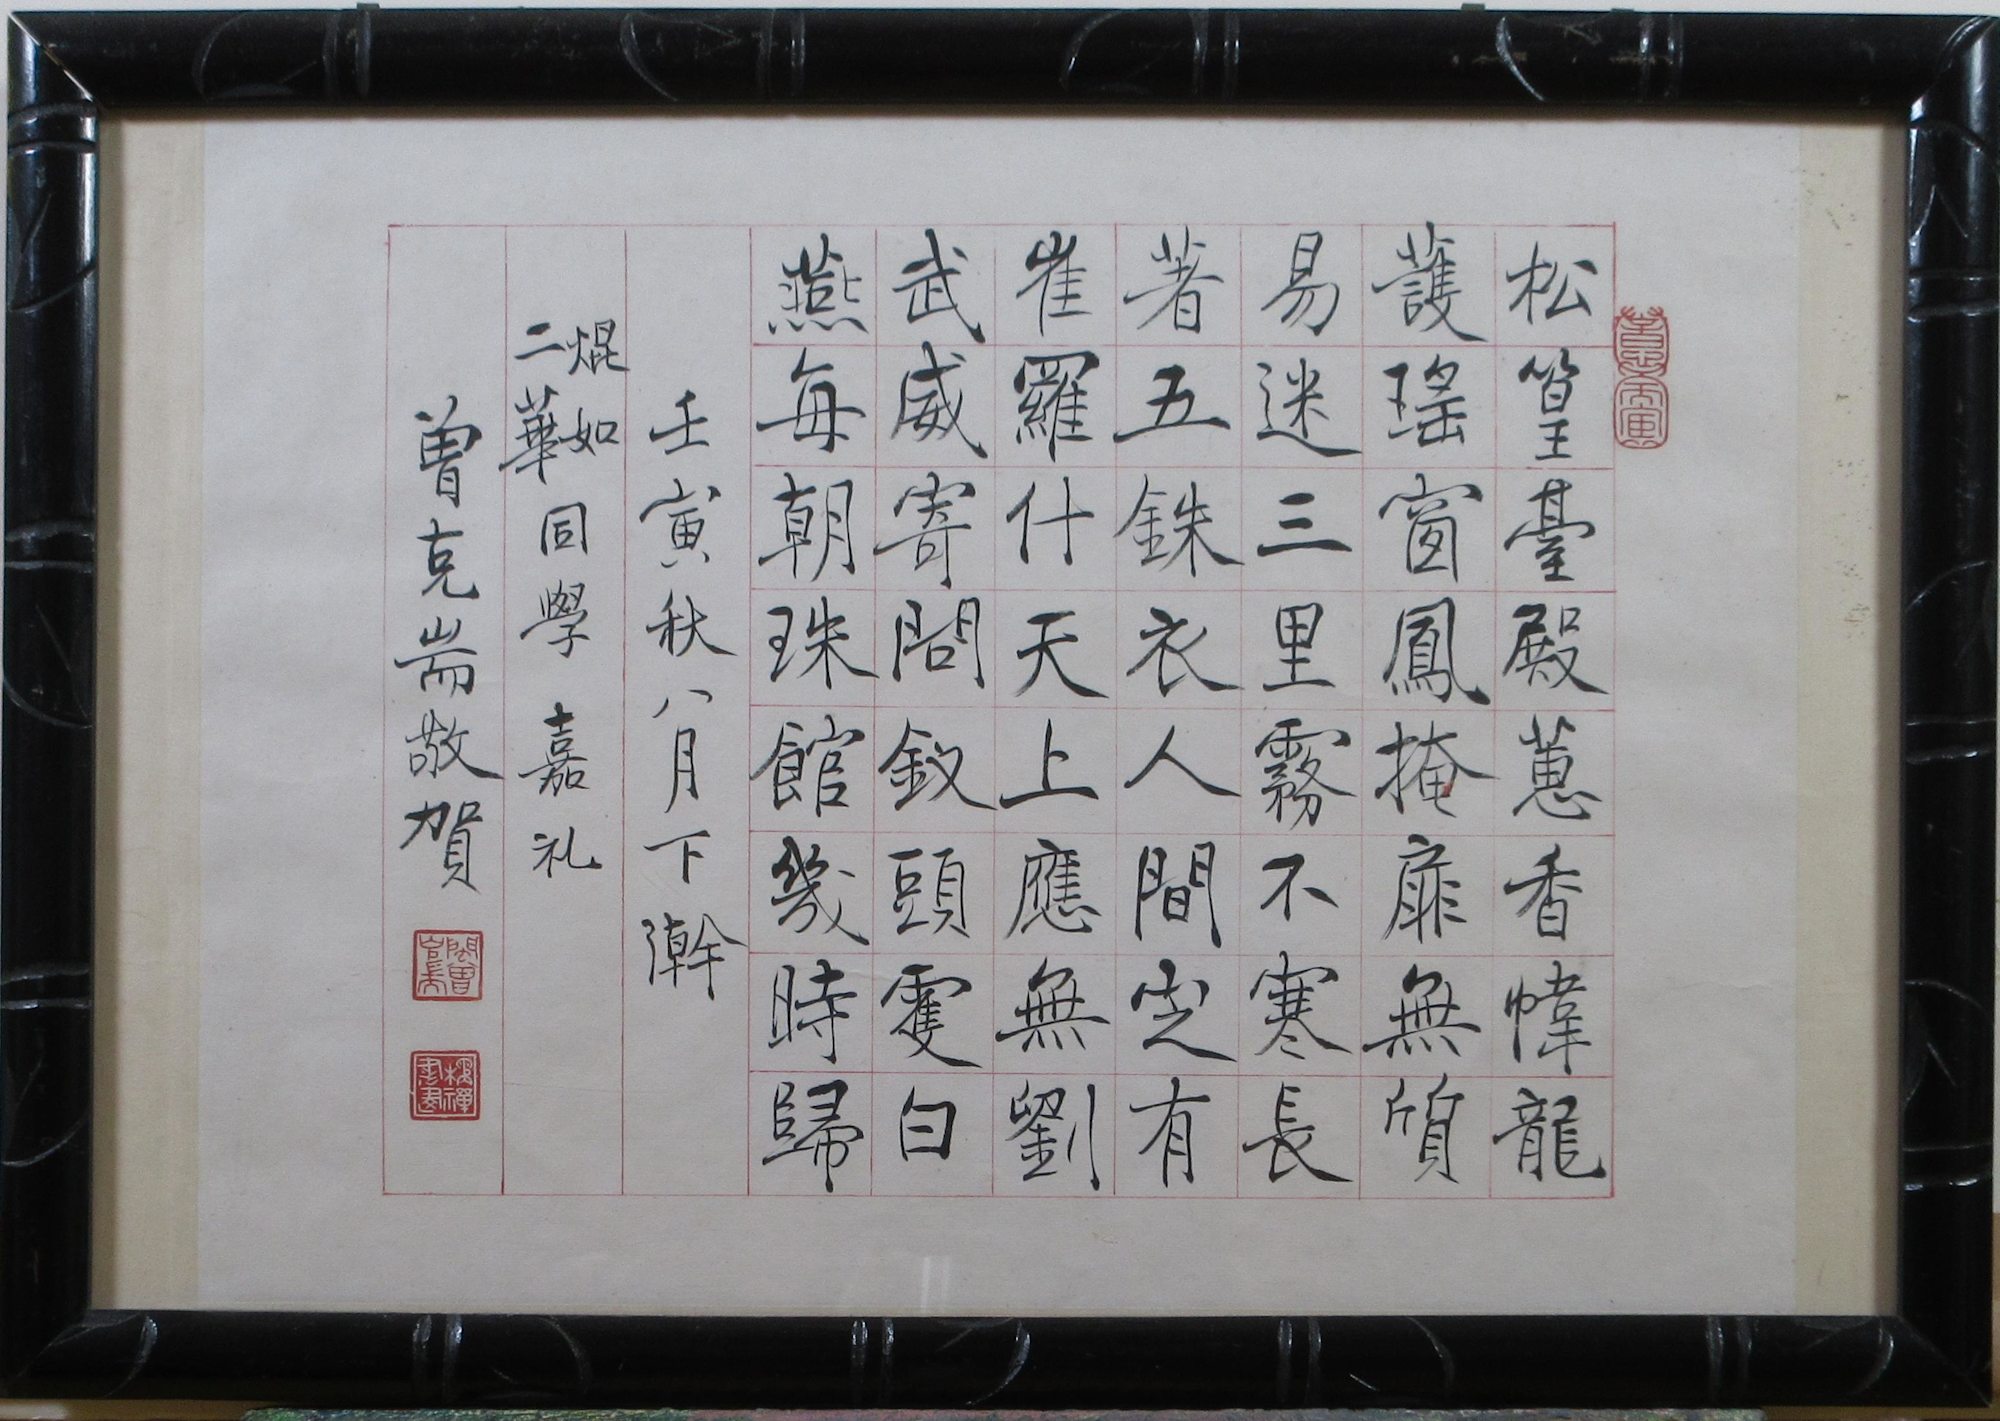 松篁臺殿蕙香幃龍
護瑤窗鳳掩扉無質
易迷三里霧不寒長
著五銖衣人間定有
崔羅什天上應無劉
武威寄問釵頭雙白
燕每朝珠館幾時歸
壬寅秋八月下澣
焜如二華同學嘉礼
曾克耑敬賀